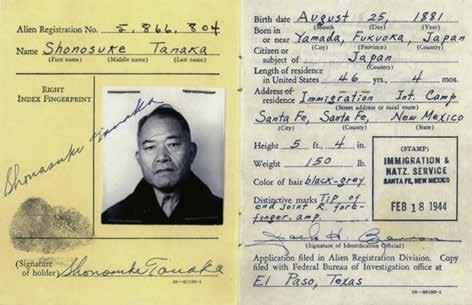 Alien Registration No. 5,866,804
Name Shonosuke Tanaka
(First name) (Middle name) (Last name)
RIGHT
INDEX FINGERPRINT
Shonosuke Tanaka
(Signature
of holder) Shonosuke Tanaka
16—22120-1
Birth date August 25, 1881
(Month) (Day) (Year)
Born in
or near Yamada, Fukuoka, Japan
(City) (Province) (Country)
Citizen or
subject of Japan
(Country)
Length of residence
in United States 46 yrs., 4 mos.
Address of
residence Immigration Int. Camp
(Street address or rural route)
Santa Fe, Santa Fe, New Mexico
(City) (County) (State)
Height 5 ft., 4 in.
Weight 150 lb.
Color of hair black-grey
Distinctive marks Tip of
end joint R. fore-
finger amp.
(STAMP)
IMMIGRATION &
NATZ. SERVICE
SANTA FE, NEW MEXICO
FEB 18 1944
(Signature of Identification Official)
Application filed in Alien Registration Division. Copy
filed with Federal Bureau of Investigation office at
El Paso, Texas